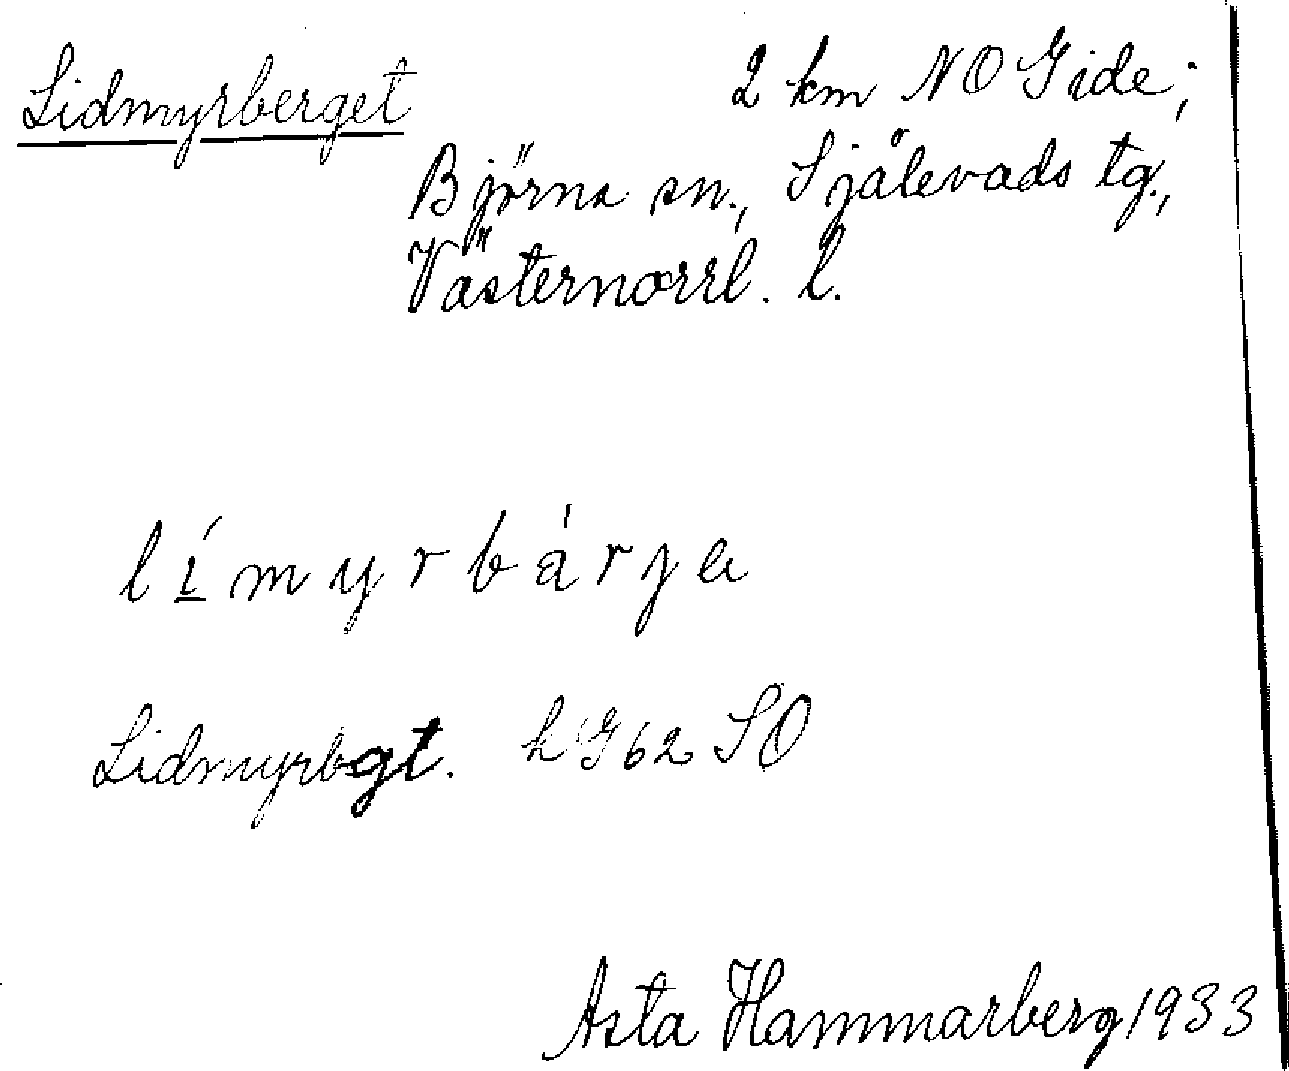 Lidmyrberget 2 km NO Gide;
Björna sn., Själevads tg.,
Västernorrl. l.
lí̱myrbárja
Lidmyrbgt. k G62 SO
Asta Hammarberg 1933